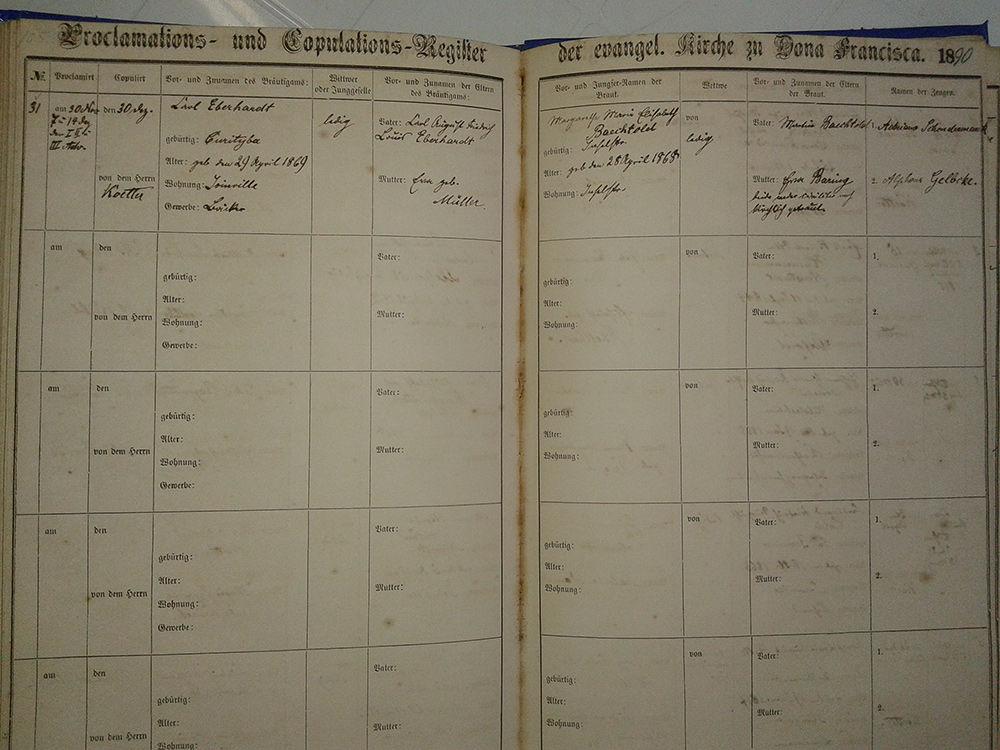 Proclamations- und Copulations-Register
der evangel. Kirche zu Dona Francisca. 1890
№. Proclamirt Copulirt Vor- und Zunamen des Bräutigams: Wittwer oder Junggeselle Vor- und Zunamen der Eltern des Bräutigams:
Vor- und Jungfer-Namen der Braut. Wittwe Vor- und Zunamen der Eltern der Braut. Namen der Zeugen.
31 am 30 Nov.
7 u 14 Dez.
den 30 Dez.
von dem Herrn
Koelle
Carl Eberhardt
gebürtig: Curityba
Alter: geb den 29 April 1869
Wohnung: Joinville
Gewerbe:
ledig
Vater: Carl August Friedrich
Louis Eberhardt
Mutter: geb.
Müller.
Margareth Maria Elisabeth
Baechtold
gebürtig: Inselstr.
Alter: geb den 28 April 1868
Wohnung: Inselstr.
von
ledig
Vater: Martin Baechtold
Mutter: Baring
kirchlich getraut.
1. Adriano Schondermark
2. Alphons Gelbcke.
am den
von dem Herrn
gebürtig:
Alter:
Wohnung:
Gewerbe:
Vater:
Mutter:
gebürtig:
Alter:
Wohnung:
von
Vater:
Mutter:
1.
2.
am den
von dem Herrn
gebürtig:
Alter:
Wohnung:
Gewerbe:
Vater:
Mutter:
gebürtig:
Alter:
Wohnung:
von
Vater:
Mutter:
1.
2.
am den
von dem Herrn
gebürtig:
Alter:
Wohnung:
Gewerbe:
Vater:
Mutter:
gebürtig:
Alter:
Wohnung:
von
Vater:
Mutter:
1.
2.
am den
von dem Herrn
gebürtig:
Alter:
Wohnung:
Vater:
Mutter:
gebürtig:
Alter:
Wohnung:
von
Vater:
Mutter:
1.
2.